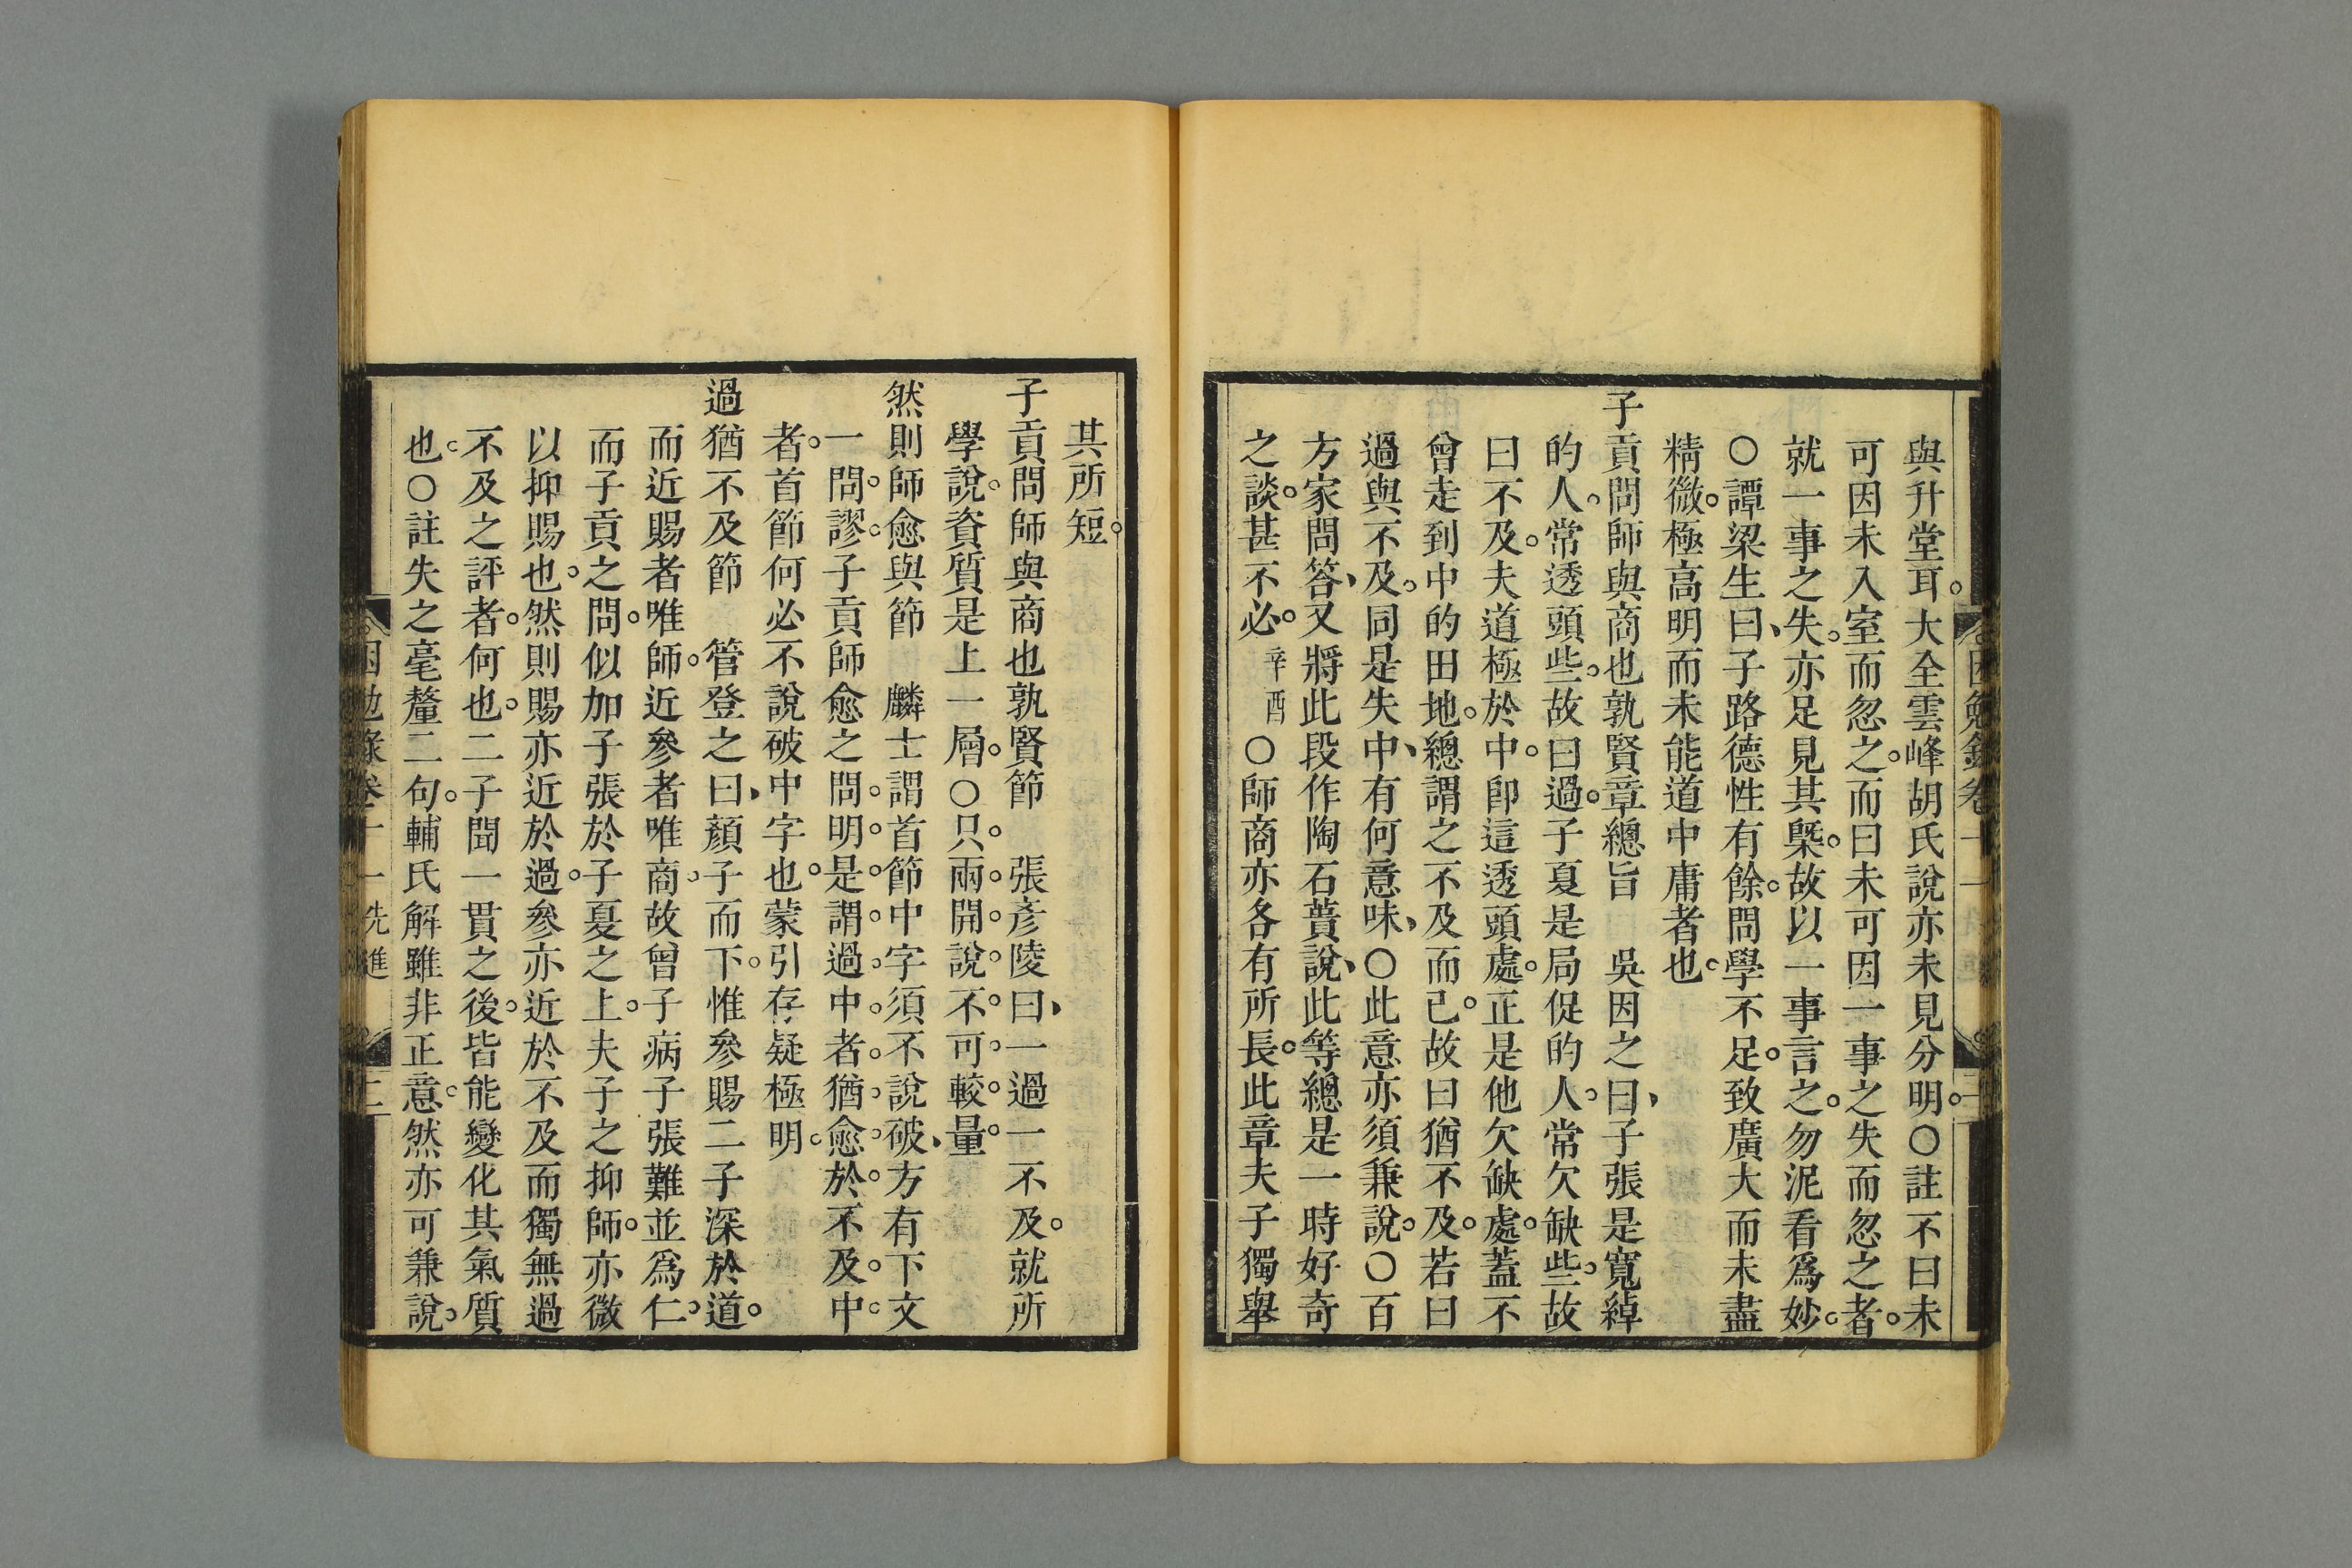 與升堂耳。大全雲峰胡氏說亦未見分明。○註不曰未
可因未入室而忽之。而曰未可因一事之失而忽之者。
就一事之失。亦足見其槩。故以一事言之。勿泥看爲妙。
○譚梁生曰、子路德性有餘。問學不足。致廣大而未盡
精微。極高明而未能道中庸者也。
子貢問師與商也孰賢章總旨　吳因之曰、子張是寬綽
的人。常透頭些。故曰過。子夏是局促的人。常欠缺些。故
曰不及。夫道極於中。卽這透頭處。正是他欠缺處。蓋不
曾走到中的田地。總謂之不及而已。故曰猶不及。若曰
過與不及。同是失中、有何意味、○此意亦須兼說。○百
方家問答、又將此段作陶石蕢說、此等總是一時好奇
之談。甚不必。辛酉○師商亦各有所長。此章夫子獨舉
其所短。
子貢問師與商也孰賢節　張彥陵曰、一過一不及。就所
學說。資質是上一層。○只兩開說。不可較量。
然則師愈與節　麟士謂首節中字須不說破、方有下文
一問。謬。子貢師愈之問。明是謂過中者。猶愈於不及中
者。首節何必不說破中字也。蒙引存疑極明。
過猶不及節　管登之曰、顏子而下。惟參賜二子深於道。
而近賜者唯師。近參者唯商。故曾子病子張難並爲仁。
而子貢之問。似加子張於子夏之上。夫子之抑師。亦微
以抑賜也。然則賜亦近於過。參亦近於不及。而獨無過
不及之評者。何也。二子聞一貫之後。皆能變化其氣質
也。○註失之毫釐二句。輔氏解雖非正意。然亦可兼說。
困勉錄卷十一先進　二